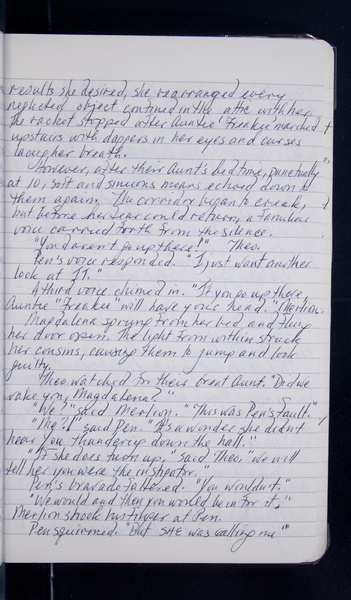 results she desired, she rearranged every
neglected object confined in the attic with her.
The racket stopped after Auntie "Freakie" marched
upstairs with daggers in her eyes and curses
laughing her breath.
However, after their Aunt's bedtime, punctually
at 10, soft and sinuous means echoed down to
them again. The corridor began to creak,
but before her fear could return, a familiar
voice carried forth from the silence.
"You daren't go up there!" Theo.
Pen's voice responded. "I just want another
look at IT."
A third voice chimed in. "If you go up there,
Auntie "Freakie" will have your head." Merlion.
Magdalena sprung from her bed, and flung
her door open. The light from within struck
her cousins, causing them to jump and look
guilty.
Theo watched for their Great Aunt. "Did we
wake you, Magdalena?"
"We?" said Merlion. "This was Pen's fault."
"Me?!" said Pen. "It's a wonder she didn't
hear you thundering down the hall."
"If she does turn up," said Theo, "we will
tell her you were the instigator."
Pen's bravado faltered. "You wouldn't."
"We would and then you would be in for it,"
Merlion shook his finger at Pen.
Pen squirmed. "But SHE was calling me"